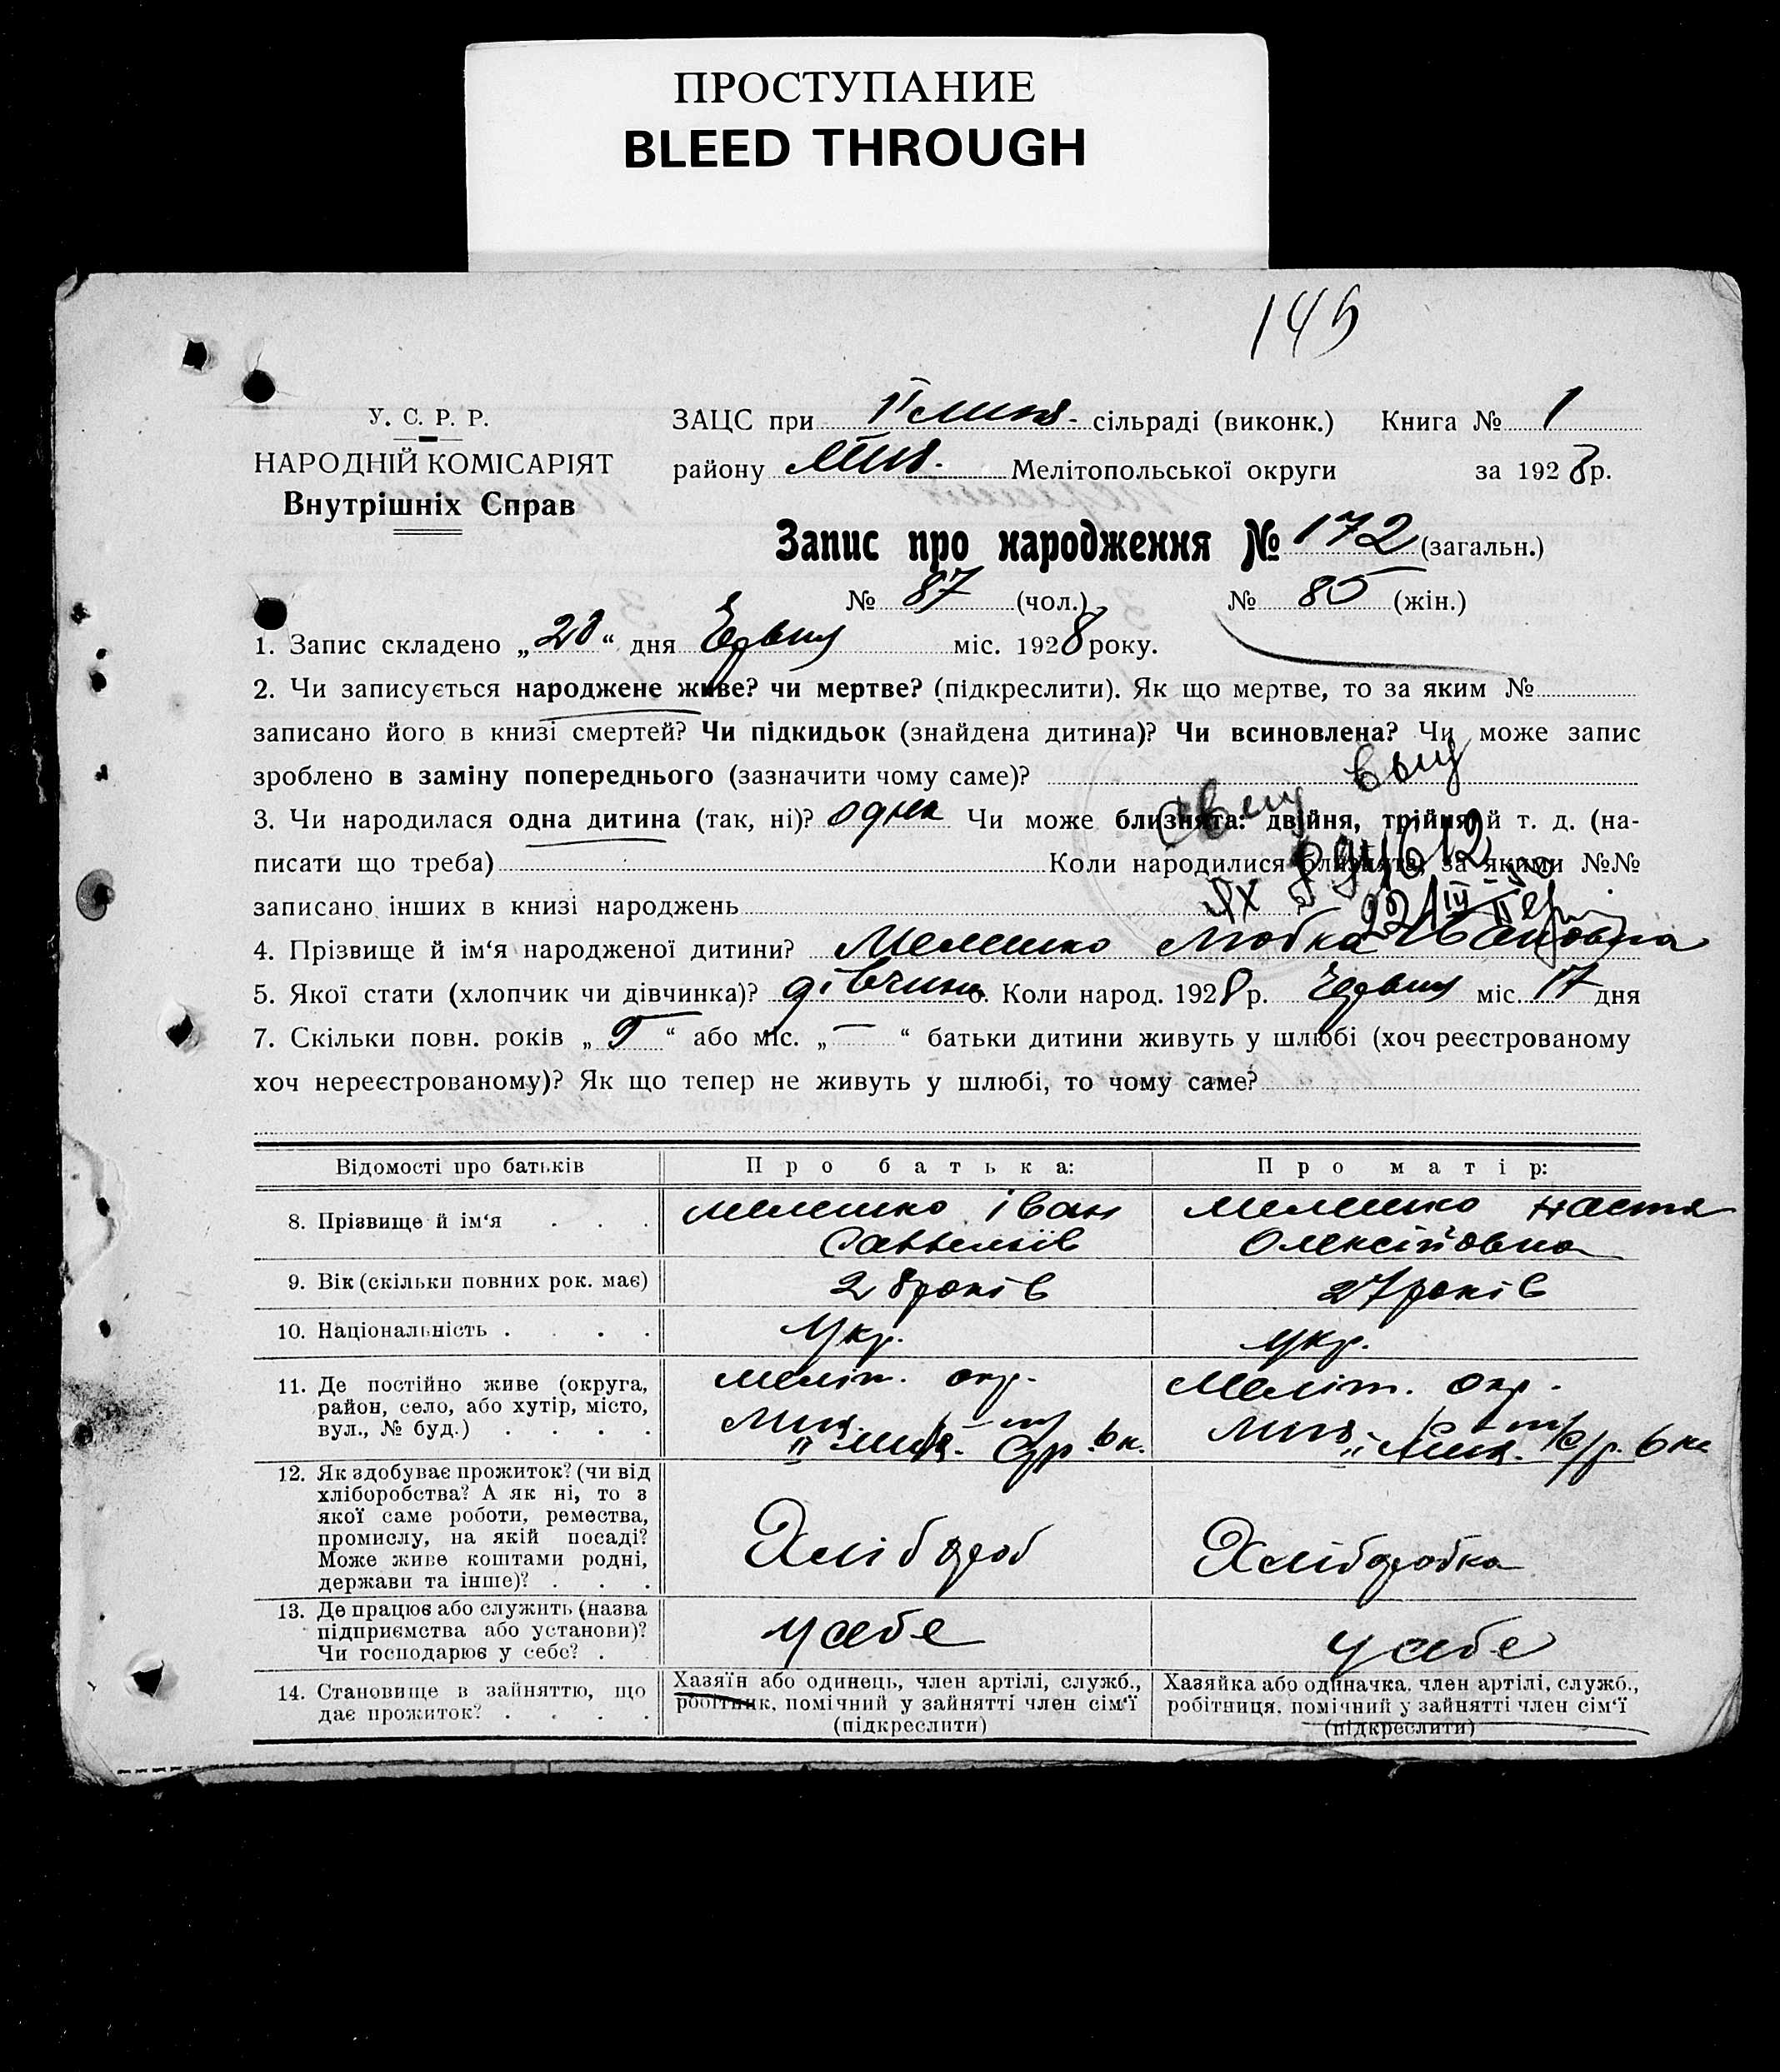 ПРОСТУПАНИЕ
BLEED THROUGH
145
У. С. Р. Р.
НАРОДНІЙ КОМІСАРІЯТ
Внутрішніх Справ
ЗАЦС при сільраді (виконк.) Книга № 1
району Мелітопольської округи за 1928 р.
Запис про народження № 172 (загальн.)
№ 87 (чол.) № 85 (жін.)
1. Запис складено „20“ дня Червня міс. 1928 року.
2. Чи записується народжене живе? чи мертве? (підкреслити). Як що мертве, то за яким №
записано його в книзі смертей? Чи підкидьок (знайдена дитина)? Чи всиновлена? Чи може запис
зроблено в заміну попереднього (зазначити чому саме)?
3. Чи народилася одна дитина (так, ні)? одна Чи може близнята: двійня, трійня й т. д. (на-
писати що треба) Коли народилися близнята, за якими №№
записано інших в книзі народжень
4. Прізвище й ім‘я народженої дитини? Мелешко Любка Івановна
5. Якої стати (хлопчик чи дівчинка)? дівчина 6. Коли народ. 1928 р. Червня міс. 17 дня
7. Скільки повн. років „ “ або міс. „—“ батьки дитини живуть у шлюбі (хоч реєстрованому
хоч нереєстрованому)? Як що тепер не живуть у шлюбі, то чому саме?
Відомості про батьків Про батька: Про матір:
8. Прізвище й ім‘я . . . Мелешко Іван Мелешко Настя
Олексійовна
9. Вік (скільки повних рок. має) 28 років 27 років
10. Національність . . . . Укр. Укр.
11. Де постійно живе (округа, район, село, або хутір, місто, вул., № буд.) . . . . Меліт. окр. Меліт. окр.
12. Як здобуває прожиток? (чи від хліборобства? А як ні, то з якої саме роботи, ремества, промислу, на якій посаді? Може живе коштами родні, держави та інше)? . . . Хлібороб Хліборобка
13. Де працює або служить (назва підприємства або установи)? Чи господарює у себе? . у себе у себе
14. Становище в зайняттю, що дає прожиток? . . . .
Хазяїн або одинець, член артілі, служб., робітник, помічний у зайнятті член сім‘ї (підкреслити)
Хазяйка або одиначка, член артілі, служб., робітниця, помічний у зайнятті член сім‘ї (підкреслити)